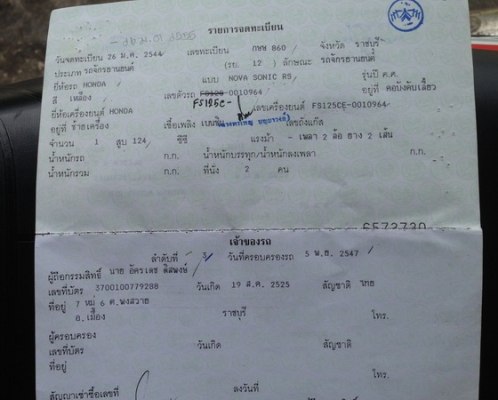 รายการจดทะเบียน
วันจดทะเบียน 26 ม.ค. 2544 เลขทะเบียน กหพ 860 จังหวัด ราชบุรี
ประเภท รถจักรยานยนต์ (รย. 12) ลักษณะ รถจักรยานยนต์
ยี่ห้อรถ HONDA แบบ NOVA SONIC RS รุ่นปี ค.ศ.
สี เหลือง เลขตัวรถ -0010964 อยู่ที่ คอบังคับเลี้ยว
FS125C-
ยี่ห้อเครื่องยนต์ HONDA เลขเครื่องยนต์ FS125CE-0010964
อยู่ที่ ข้างเครื่อง เชื้อเพลิง เบนซิน เลขถังแก๊ส
จำนวน 1 สูบ 124 ซีซี แรงม้า - เพลา 2 ล้อ ยาง 2 เส้น
น้ำหนักรถ ก.ก. น้ำหนักบรรทุก/น้ำหนักลงเพลา ก.ก.
น้ำหนักรวม ก.ก. ที่นั่ง 2 คน
เจ้าของรถ
ลำดับที่ วันที่ครอบครองรถ 5 พ.ย. 2547
ผู้ถือกรรมสิทธิ์ นาย
เลขที่บัตร 3700100779288 วันเกิด 19 ส.ค. 2525 สัญชาติ ไทย
ที่อยู่ 7 หมู่ 6 ต.พงสวาย
อ.เมือง ราชบุรี โทร.
ผู้ครอบครอง
เลขที่บัตร วันเกิด สัญชาติ
ที่อยู่
โทร.
สัญญาเช่าซื้อเลขที่ ลงวันที่